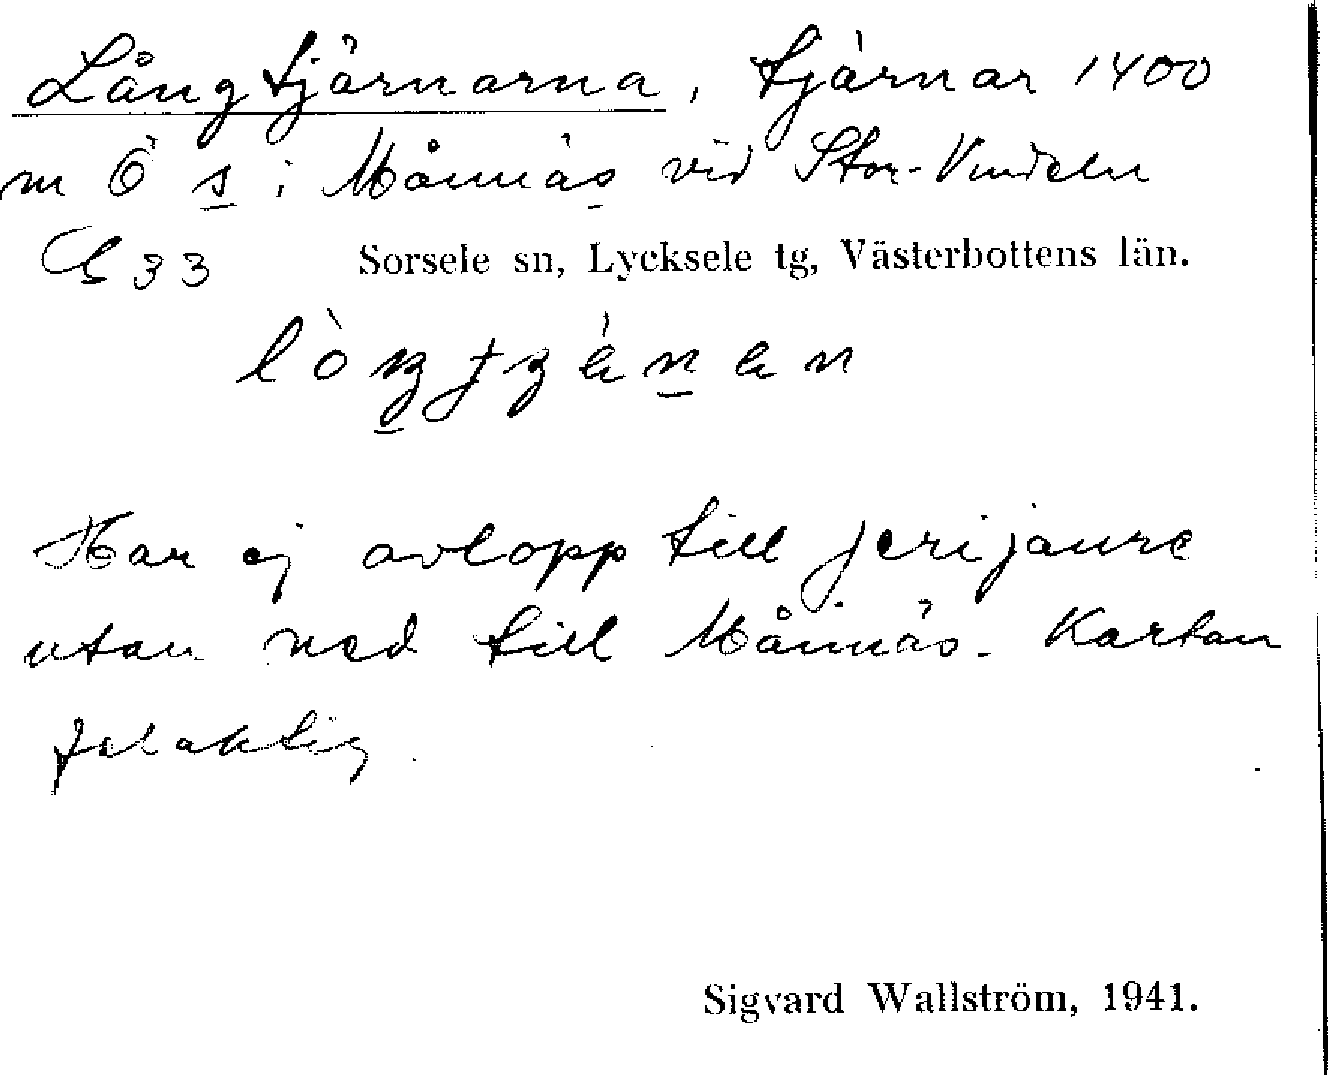 Långtjärnarna, tjärnar 1400
m Ö s i Månnäs vid Stor-Vindeln
33 Sorsele sn, Lycksele tg, Västerbottens län.
Har ej avlopp till Jerijaure
utan ned till Månnäs. Kartan
felaktig.
Sigvard Wallström, 1941.